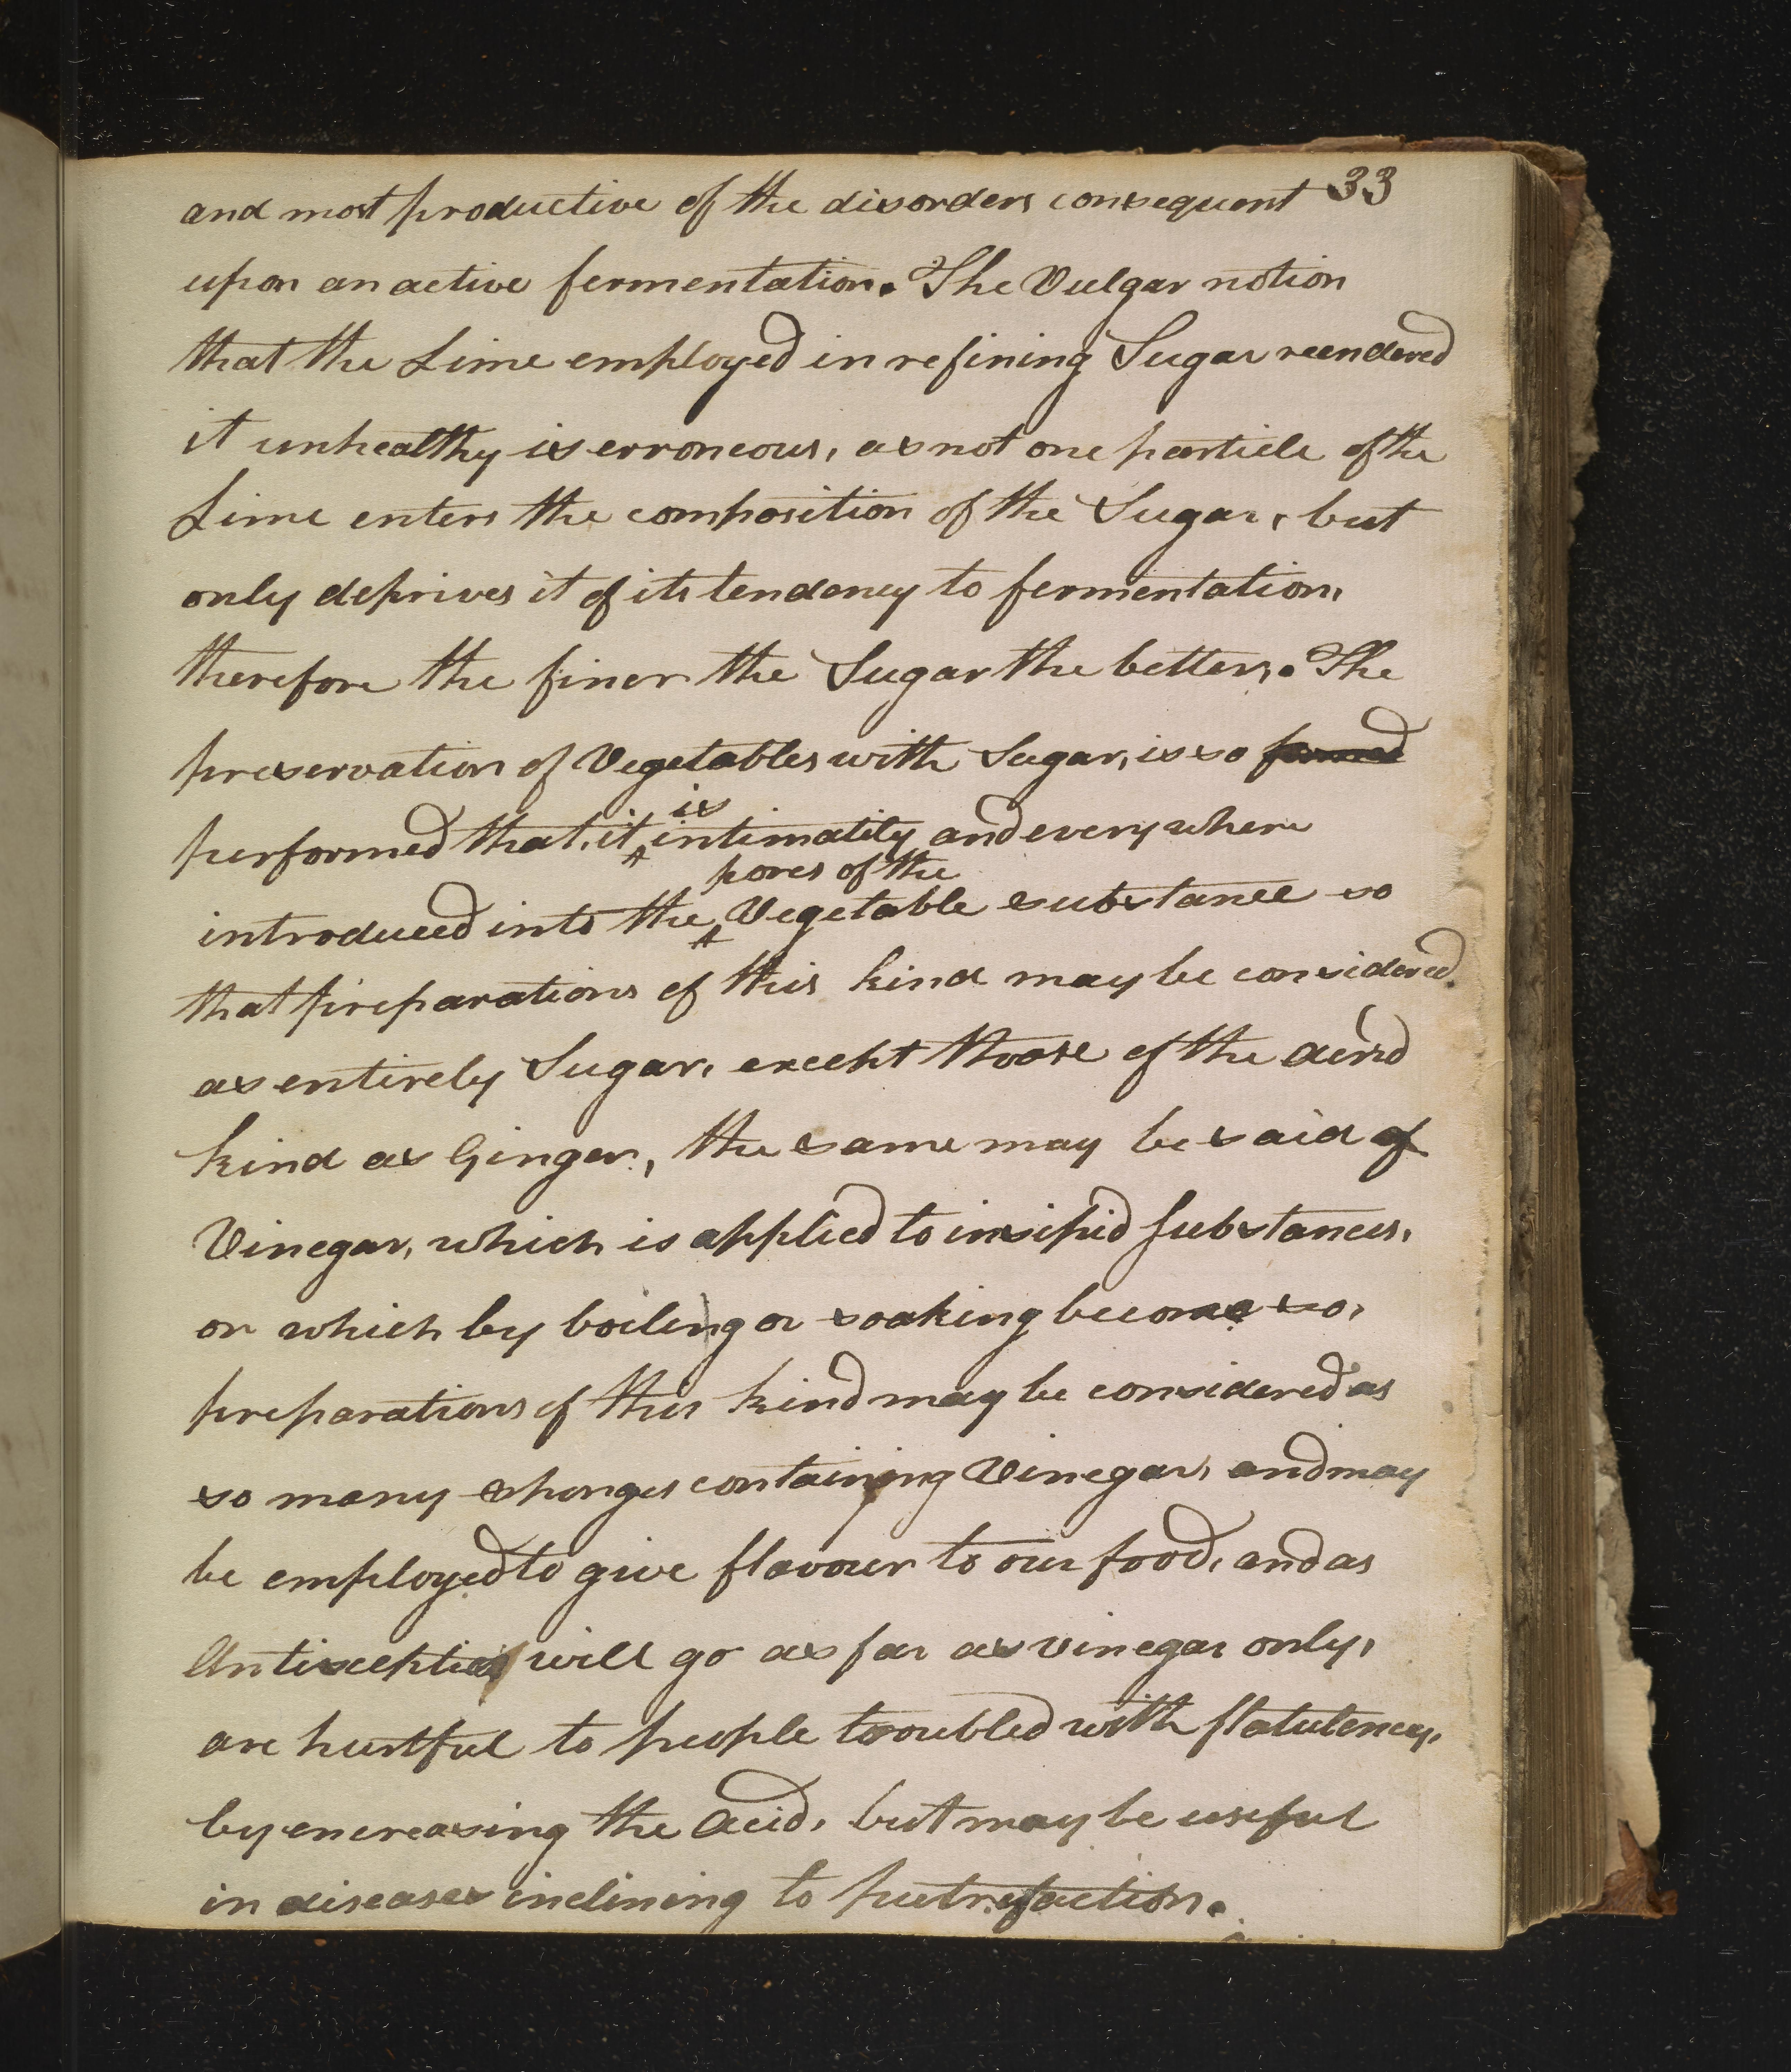 and most productive of the disorders consequent 33
upon an active fermentation. The Vulgar notion
that the Lime employed in refining Sugar reendered
it unhealthy is erroneous, as not one particle of the
Lime enters the composition of the Sugar, but
only deprives it of its tendency to fermentation,
therefore the finer the Sugar the better. The
preservation of Vegetables with Sugar, is so formed
is
performed that, it ^ intimately and every where
pores of the
introduced into the ^ Vegetable substance so
that preparations of this kind may be considered
as entirely Sugar, except those of the acrid
kind as Ginger, the same may be said of
Vinegar, which is applied to insipid substances,
or which by boiling or soaking become so,
preparations of this kind may be considered as
so many sponges containing Vinegar, and may
be employed to give flavour to our food, and as
Antiseptics will go as far as vinegar only,
are hurtful to people troubled with flatulency,
by encreasing the acid, but may be useful
in diseases inclining to putrefaction.